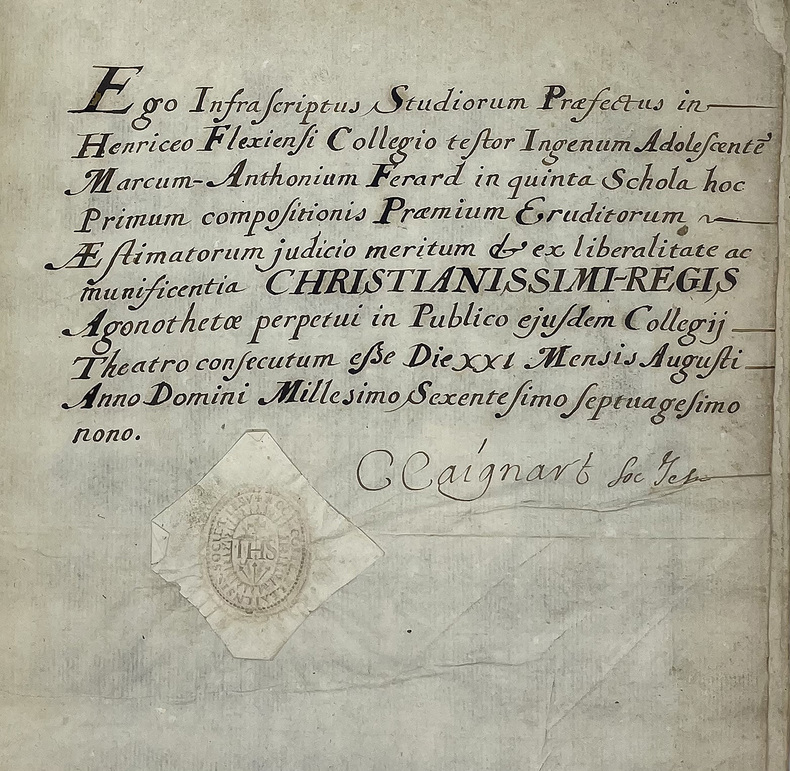 Ego Infraſcriptus Studiorum Præfectus in
Henriceo Flexienſi Collegio teſtor Ingenum Adoleſcentē
Marcum-Anthonium Ferard in quinta Schola hoc
Primum compoſitionis Præmium Eruditorum
Æſtimatorum judicio meritum & ex liberalitate ac
munificentia CHRISTIANISSIMI-REGIS
Agonothetæ perpetui in Publico ejuſdem Collegij
Theatro conſecutum eſse Die XXI Mensis Auguſti
Anno Domini Millesimo Sexenteſimo ſeptuageſimo
nono.
C Caignart Soc Jes
IHS